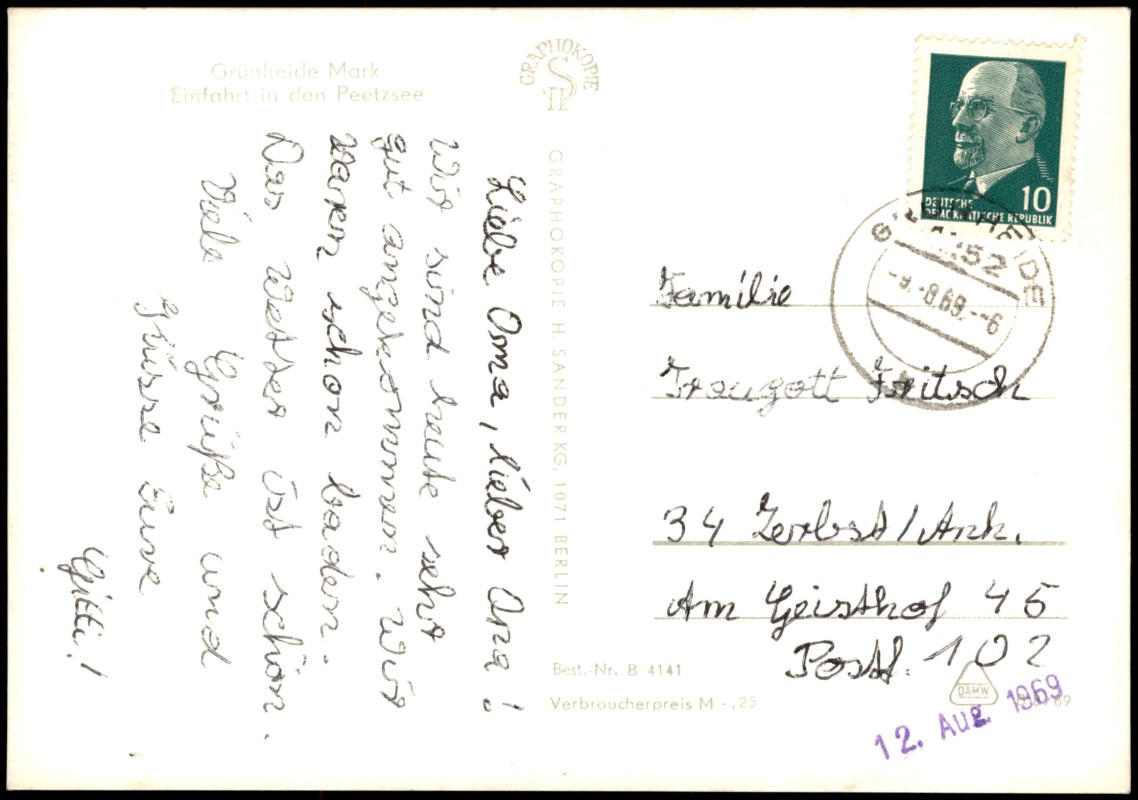 Grünheide Mark
Einfahrt in den Peetzsee
GRAPHOKOPIE
H S
GRAPHOKOPIE H. SANDER KG, 1071 BERLIN
Liebe Oma, lieber Opa!
Wir sind heute sehr
gut angekommen. Wir
waren schon baden.
Das Wetter ist schön.
Viele Grüße und
Küsse Eure
Gitti!
10
DEUTSCHE
DEMOKRATISCHE REPUBLIK
-9.-8.69.--6
Familie
Traugott Fritsch
34 Zerbst/Anh.
Am Geisthof 45
Postf. 102
Best.-Nr. B 4141
Verbraucherpreis M -,25
DAMW
12. AUG. 1969